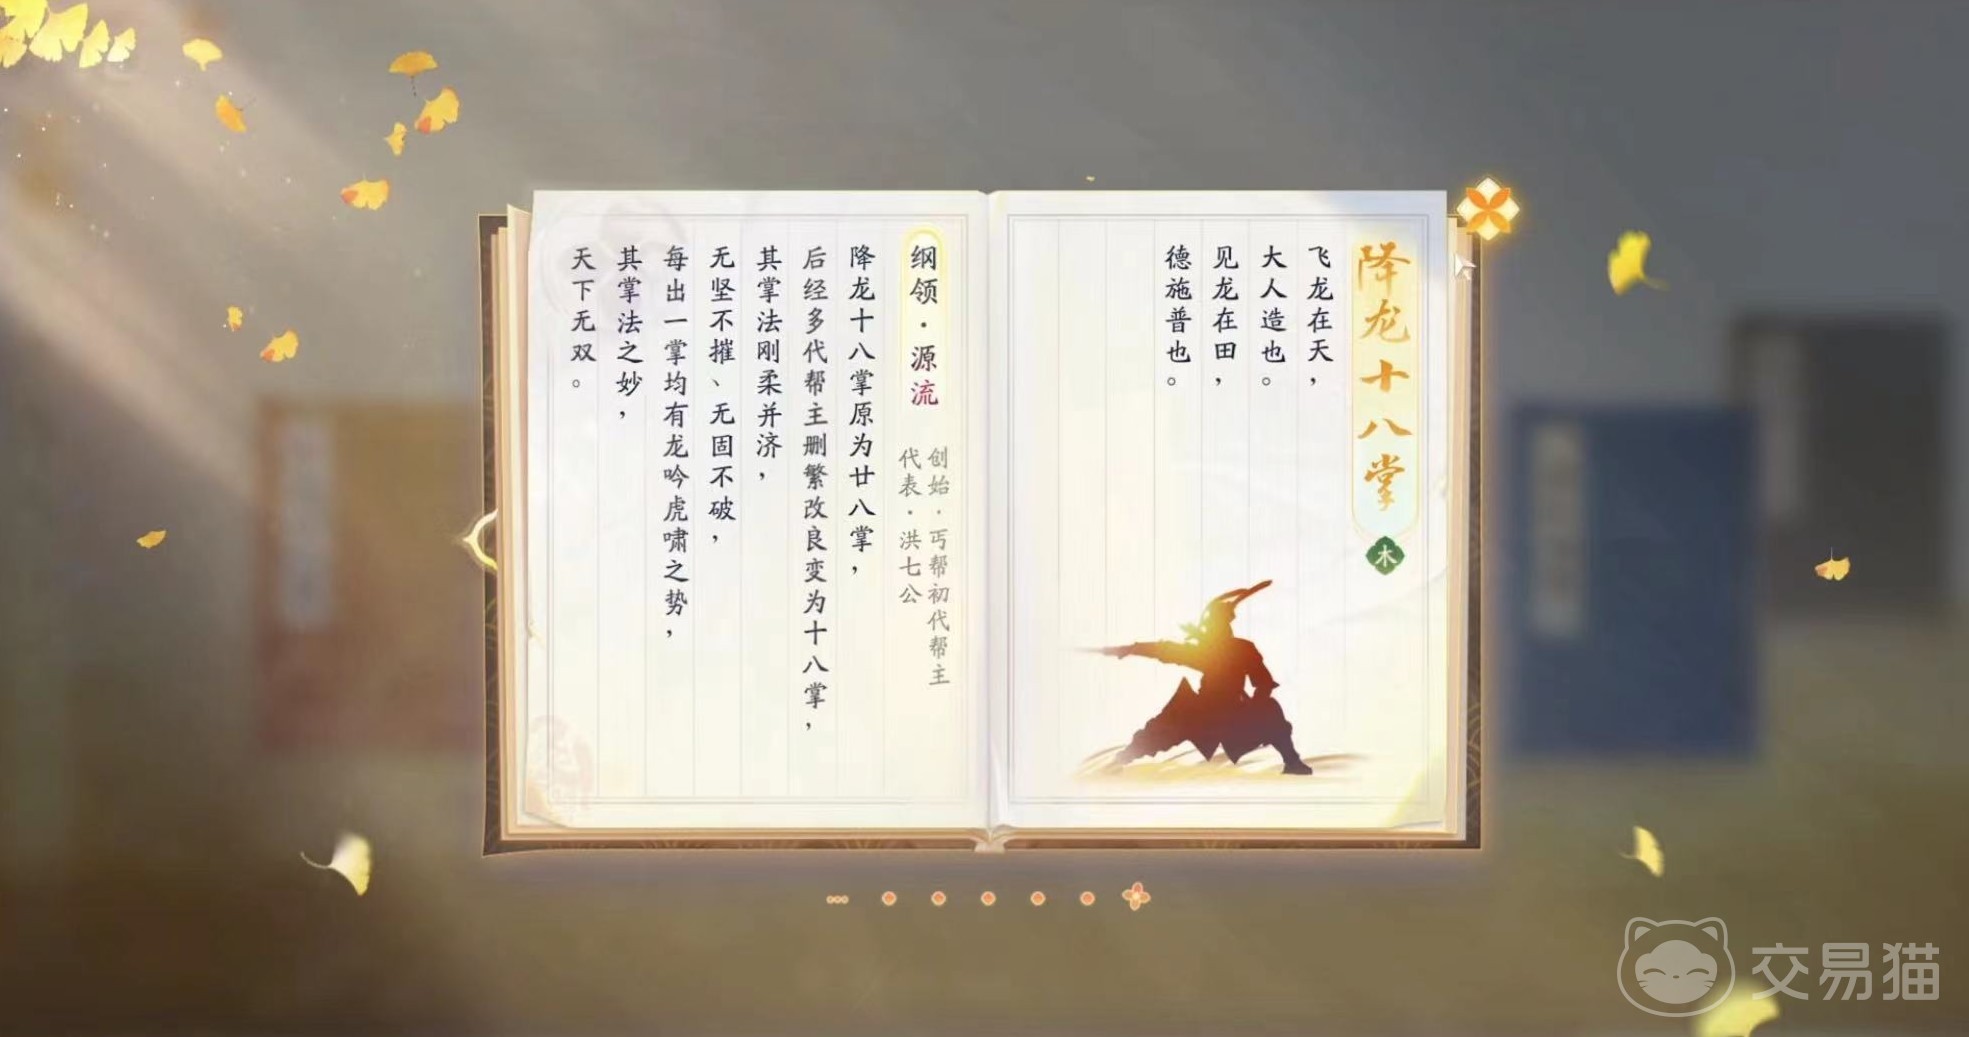 降龙十八掌
木
飞龙在天，
大人造也。
见龙在田，
德施普也。
纲领·源流
创始·丐帮初代帮主
代表·洪七公
降龙十八掌原为廿八掌，
后经多代帮主删繁改良变为十八掌，
其掌法刚柔并济，
无坚不摧、无固不破，
每出一掌均有龙吟虎啸之势，
其掌法之妙，
天下无双。
交易猫